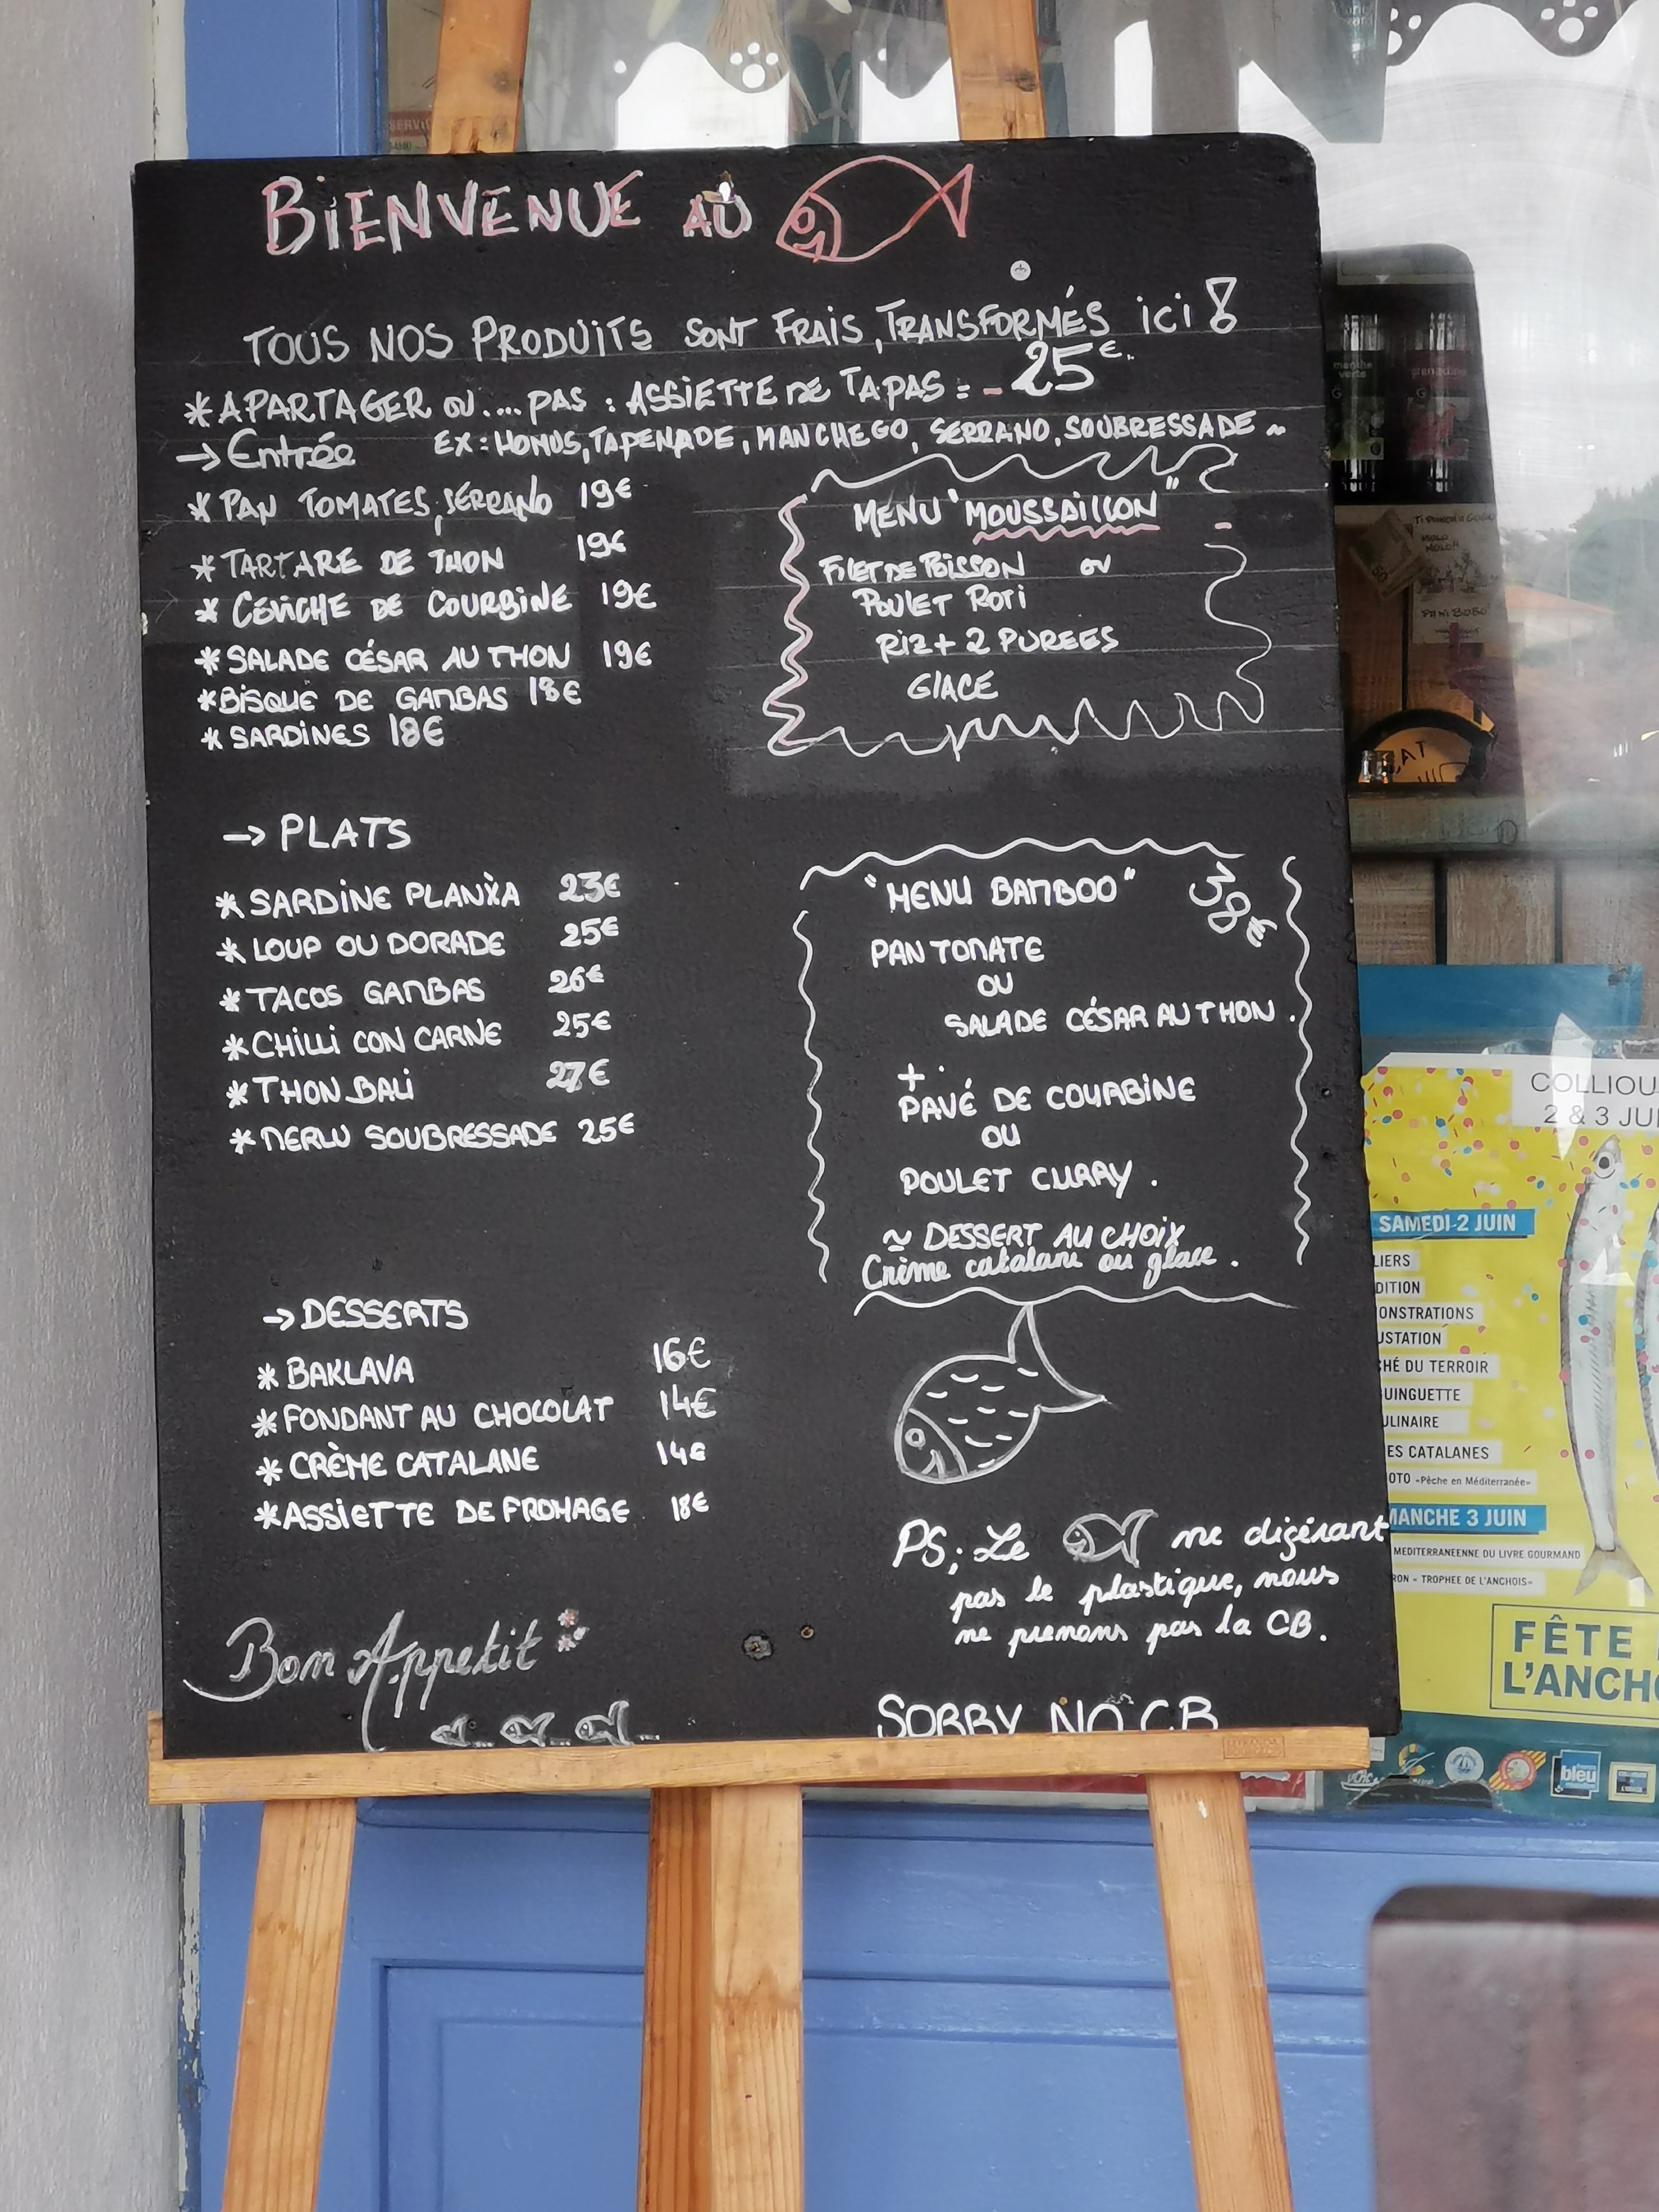 BIENVENUE AU
TOUS NOS PRODUITS SONT FRAIS, TRANSFORMÉS ici !
* A PARTAGER OU.... PAS : ASSIETTE DE TAPAS : - 25€.
→ Entrée EX : HOMUS, TAPENADE, MANCHEGO, SERRANO, SOUBRESSADE ~
* PAN TOMATES, SERRANO 19€
* TARTARE DE THON 19€
* CEVICHE DE COURBINE 19€
* SALADE CÉSAR AU THON 19€
* BISQUE DE GAMBAS 18€
* SARDINES 18€
MENU "MOUSSAILLON"
FILET DE POISSON OU
POULET ROTI
RIZ + 2 PUREES
GLACE
→ PLATS
* SARDINE PLANXA 23€
* LOUP OU DORADE 25€
* TACOS GAMBAS 26€
* CHILLI CON CARNE 25€
* THON BALI 27€
* MERLU SOUBRESSADE 25€
"MENU BAMBOO" 38€
PAN TOMATE
OU
SALADE CÉSAR AU THON.
+
PAVÉ DE COURBINE
OU
POULET CURRY.
~ DESSERT AU CHOIX
Crème catalane ou glace.
→ DESSERTS
* BAKLAVA 16€
* FONDANT AU CHOCOLAT 14€
* CRÈME CATALANE 14€
* ASSIETTE DE FROMAGE 18€
PS; Le ne digérant
pas le plastique, nous
ne prenons pas la CB.
Bon Appetit
SORRY NO CB
menthe
verte
grenadine
COLLIOU
2 & 3 JUI
SAMEDI 2 JUIN
LIERS
DITION
ONSTRATIONS
USTATION
CHÉ DU TERROIR
UINGUETTE
ULINAIRE
ES CATALANES
OTO «Pêche en Méditerranée»
MANCHE 3 JUIN
MEDITERRANEENNE DU LIVRE GOURMAND
RON « TROPHEE DE L'ANCHOIS»
FÊTE
L'ANCHO
bleu